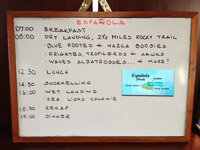 ESPAÑOLA
07:00 BREAKFAST
08:00 DRY LANDING, 2½ MILES ROCKY TRAIL
- BLUE FOOTED & NAZCA BOOBIES
- FRIGATES, TROPICBIRDS & HAWKS
- WAVED ALBATROSSES... & MORE!
12:30 LUNCH
14:30 SNORKELLING
16:00 WET LANDING
SEA LIONS COLONY
18:30 RECAP
19:00 DINNER
Española